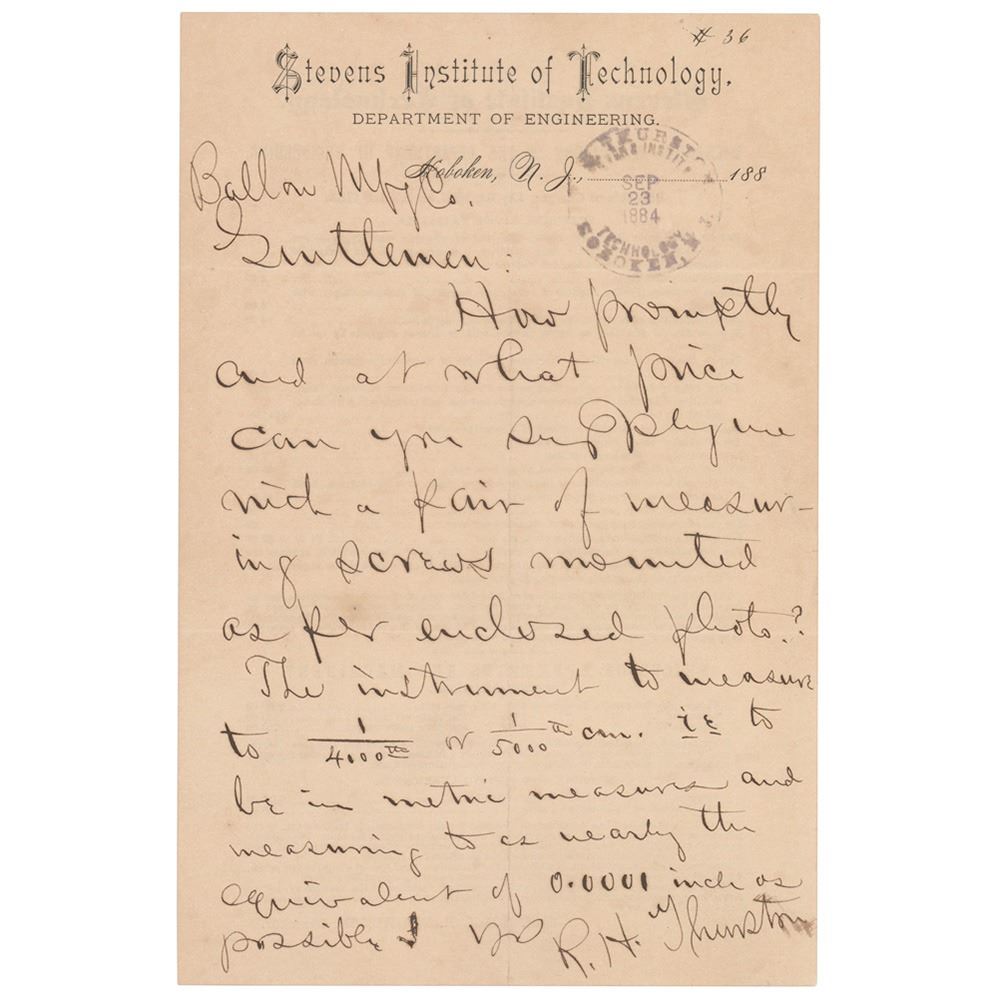 # 36
Stevens Institute of Technology.
DEPARTMENT OF ENGINEERING.
Hoboken, N. J., 188
R. H. THURSTON
STEVENS INSTIT.
SEP
23
1884
TECHNOLOGY
HOBOKEN, N.J.
Ballou Mfg Co.
Gentlemen:
How promptly
and at what price
can you supply me
with a pair of measur-
ing screws mounted
as per enclosed photo.?
The instrument to measure
to 1/4000ths or 1/5000th cm. i e to
be in metric measures and
measuring to as nearly the
equivalent of 0.0001 inch as
possible
R. H. Thurston